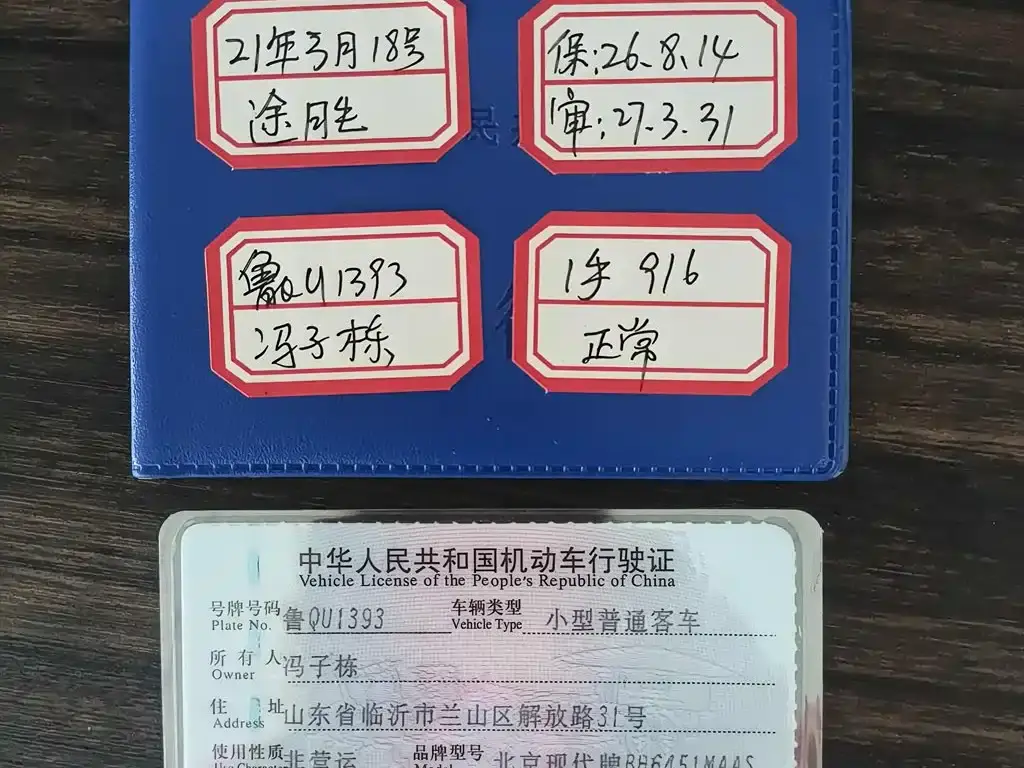 21年3月18号
保:26.8.14
审:27.3.31
民
鲁QU1393
冯子栋
1手 916
正常
中华人民共和国机动车行驶证
Vehicle License of the People's Republic of China
号牌号码 鲁QU1393 车辆类型 小型普通客车
Plate No. Vehicle Type
所有人 冯子栋
Owner
住址 山东省临沂市兰山区解放路31号
Address
使用性质 非营运 品牌型号 北京现代牌BH6451MAAS